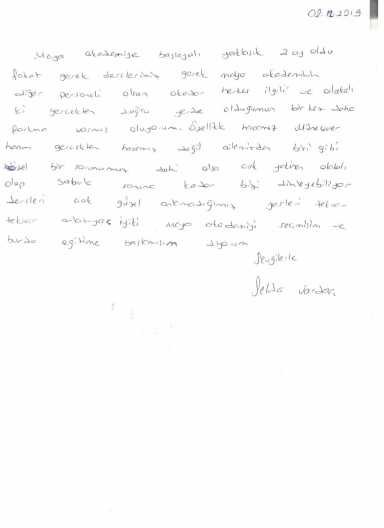 02.12.2013
Maya akademiye başlayalı yaklaşık 2 ay oldu
fakat gerek derslerimiz gerek maya akademinin
diğer personeli olsun okadar herkes ilgili ve alakalı
ki gerçekten doğru yerde olduğumun bir kez daha
farkına varmış oluyorum. Özellik hocamız
hanım gerçekten hocamız değil ailemizden biri gibi
özel bir sorunumuz dahi olsa çok yakından alakalı
olup sabırla sonuna kadar bizi dinleyebiliyor
dersleri çok güzel anlamadığımız yerleri tekrar
tekrar anlatıyor iyiki maya akademiyi seçmişim ve
burda eğitime başlamışım diyorum
Sevgilerle